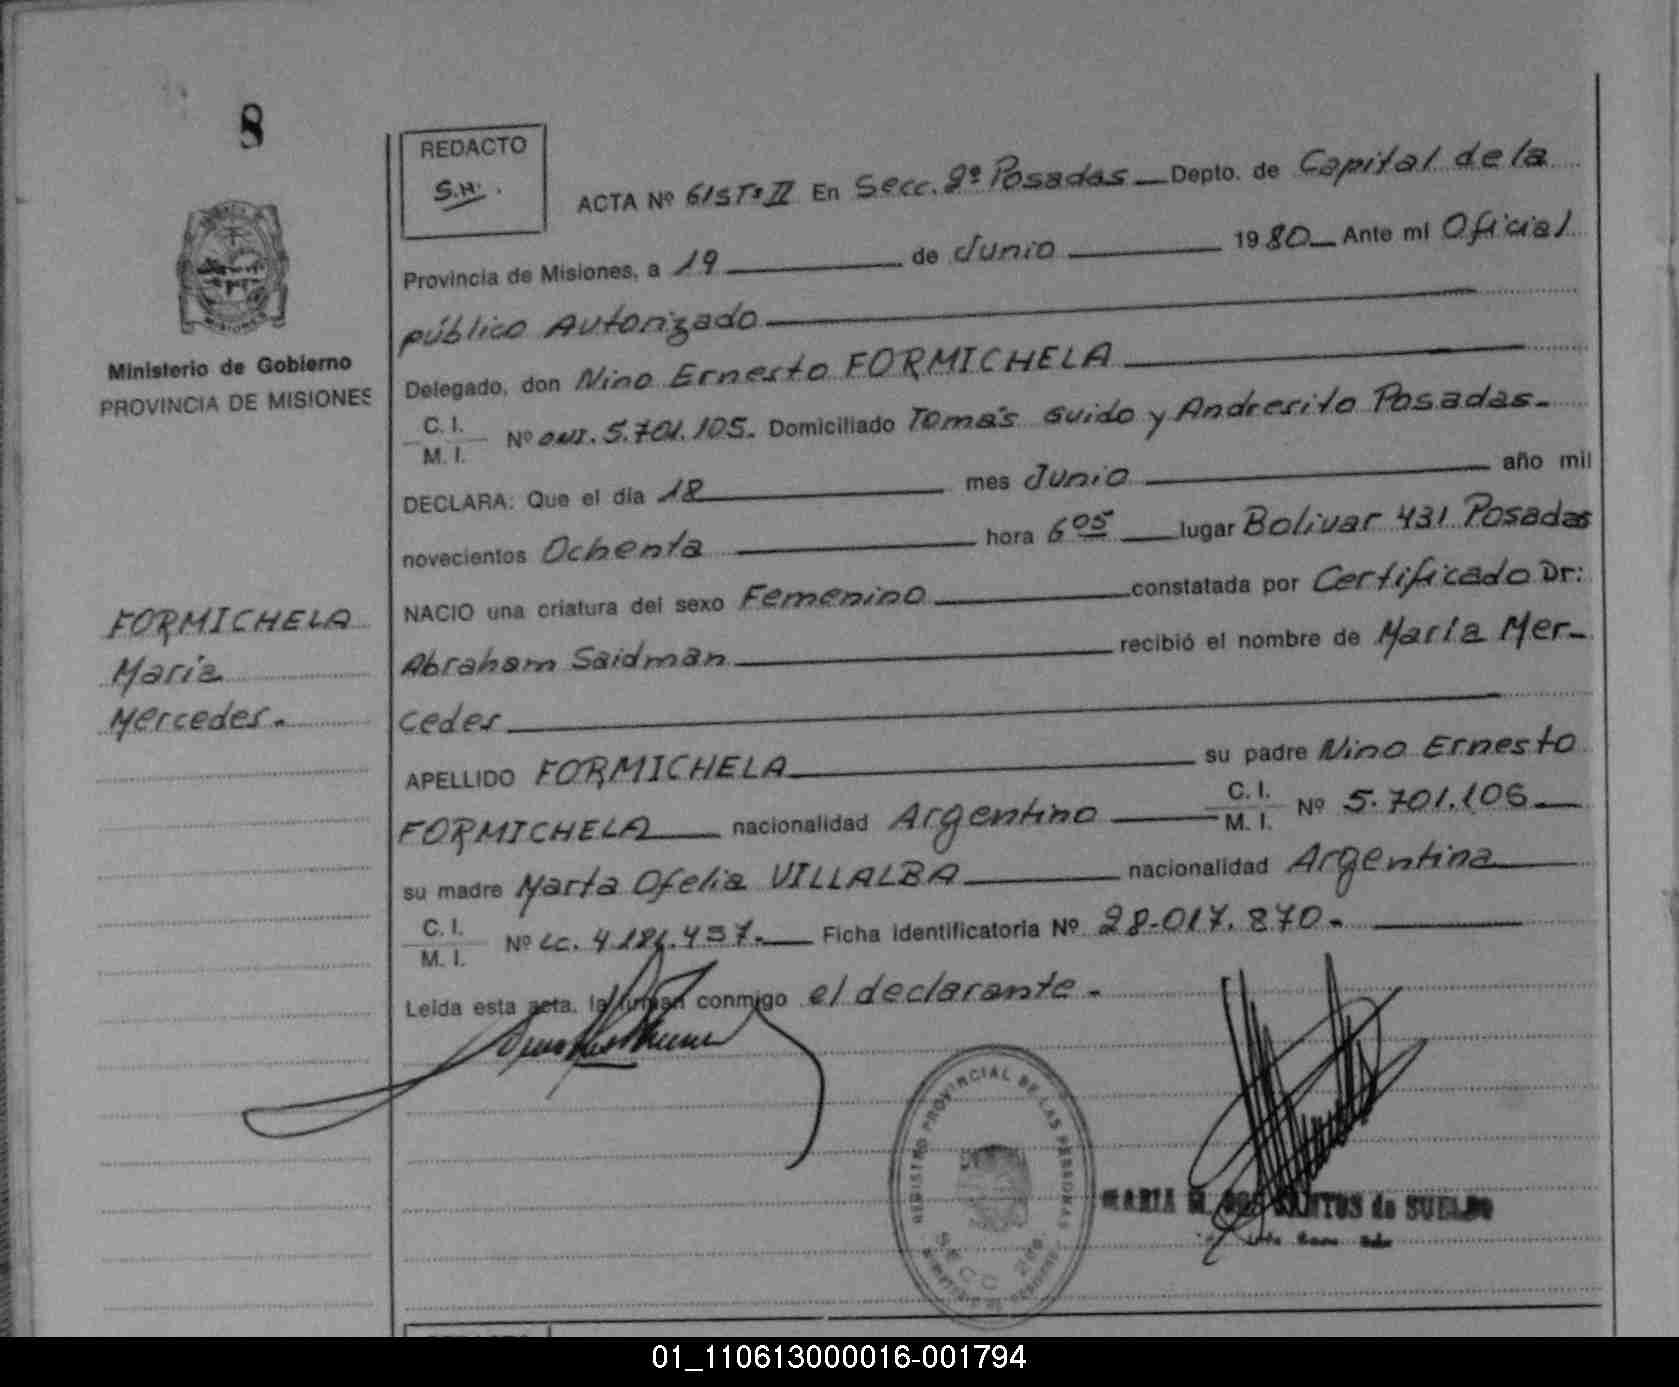 8
Ministerio de Gobierno
PROVINCIA DE MISIONES
FORMICHELA
María
Mercedes.
REDACTO
S.H.
ACTA Nº 615Tº II En Secc. 2º Posadas Depto. de Capital de la
Provincia de Misiones, a 19 de Junio 1980 Ante mi Oficial
público Autorizado
Delegado, don Nino Ernesto FORMICHELA
C. I.
M. I. Nº DNI. 5.701.105. Domiciliado Tomás Guido y Andresito Posadas.
DECLARA: Que el día 18 mes Junio año mil
novecientos Ochenta hora 6 05 lugar Bolivar 431 Posadas
NACIO una criatura del sexo Femenino constatada por Certificado Dr:
Abraham Saidman recibió el nombre de María Mer-
cedes
APELLIDO FORMICHELA su padre Nino Ernesto
FORMICHELA nacionalidad Argentino C. I. M. I. Nº 5.701.106
su madre Marta Ofelia VILLALBA nacionalidad Argentina
C. I.
M. I. Nº LC. 4.186.437. Ficha Identificatoria Nº 28.017.870.
Leída esta acta, la firman conmigo el declarante.
REGISTRO PROVINCIAL DE LAS PERSONAS
SECC 2da
MARIA M. DOS SANTOS de SUELDO
01_110613000016-001794